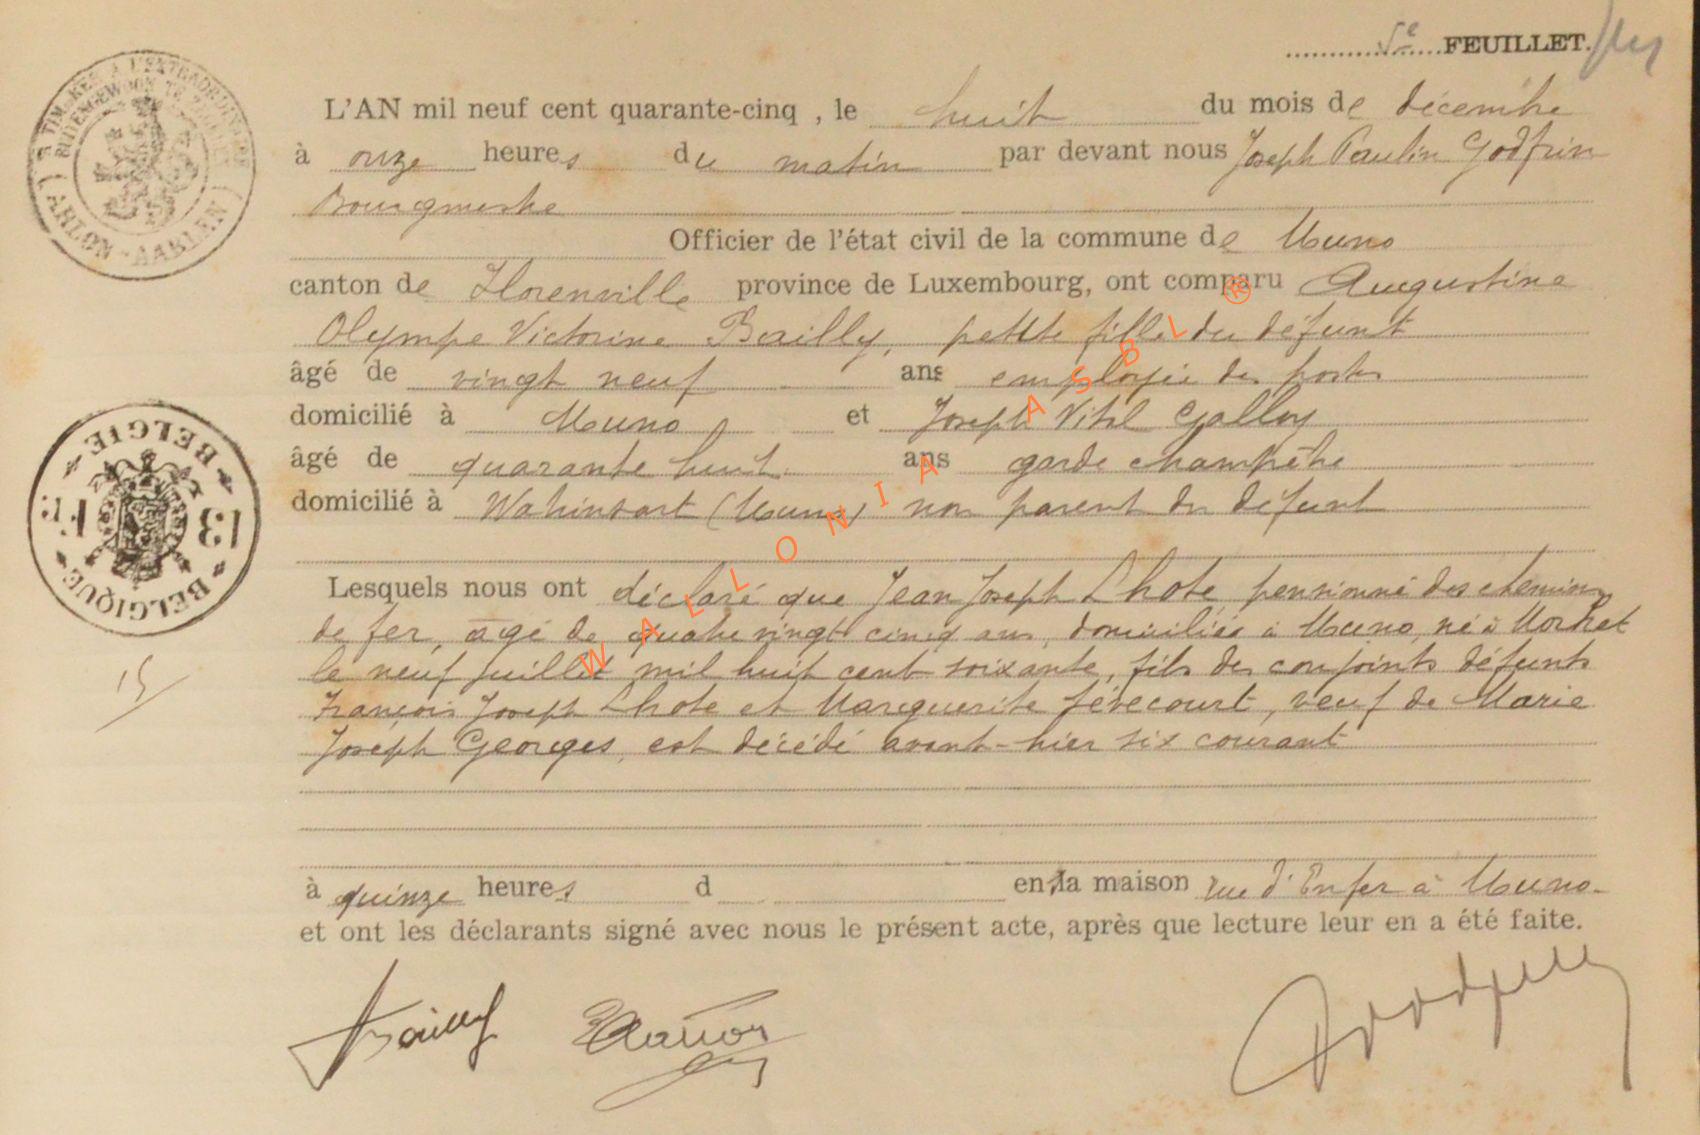 5e FEUILLET.
L'AN mil neuf cent quarante-cinq , le huit du mois de décembre
à onze heures du matin par devant nous Joseph Paulin Godfrin
Bourgmestre
Officier de l'état civil de la commune de Muno
canton de Florenville province de Luxembourg, ont comparu Augustine
Olympe Victorine Bailly, petite fille du défunt
âgé de vingt neuf ans employée des postes
domicilié à Muno et Joseph Vital Galloy
âgé de quarante huit ans garde champêtre
domicilié à Watrinsart (Muno) non parent du défunt
Lesquels nous ont déclaré que Jean Joseph Lhote pensionné des chemins
de fer, âgé de quatre vingt cinq ans, domicilié à Muno, né à Morhet
le neuf juillet mil huit cent soixante, fils des conjoints défunts
François Joseph Lhote et Marguerite Févecourt, veuf de Marie
Joseph Georges, est décédé avant-hier six courant
à quinze heures d en la maison rue d'Enfer à Muno.
et ont les déclarants signé avec nous le présent acte, après que lecture leur en a été faite.
Bailly
ARLON - AARLEN
BELGIE
13 Fr
BELGIQUE
15
WALLONIA ASBL ®